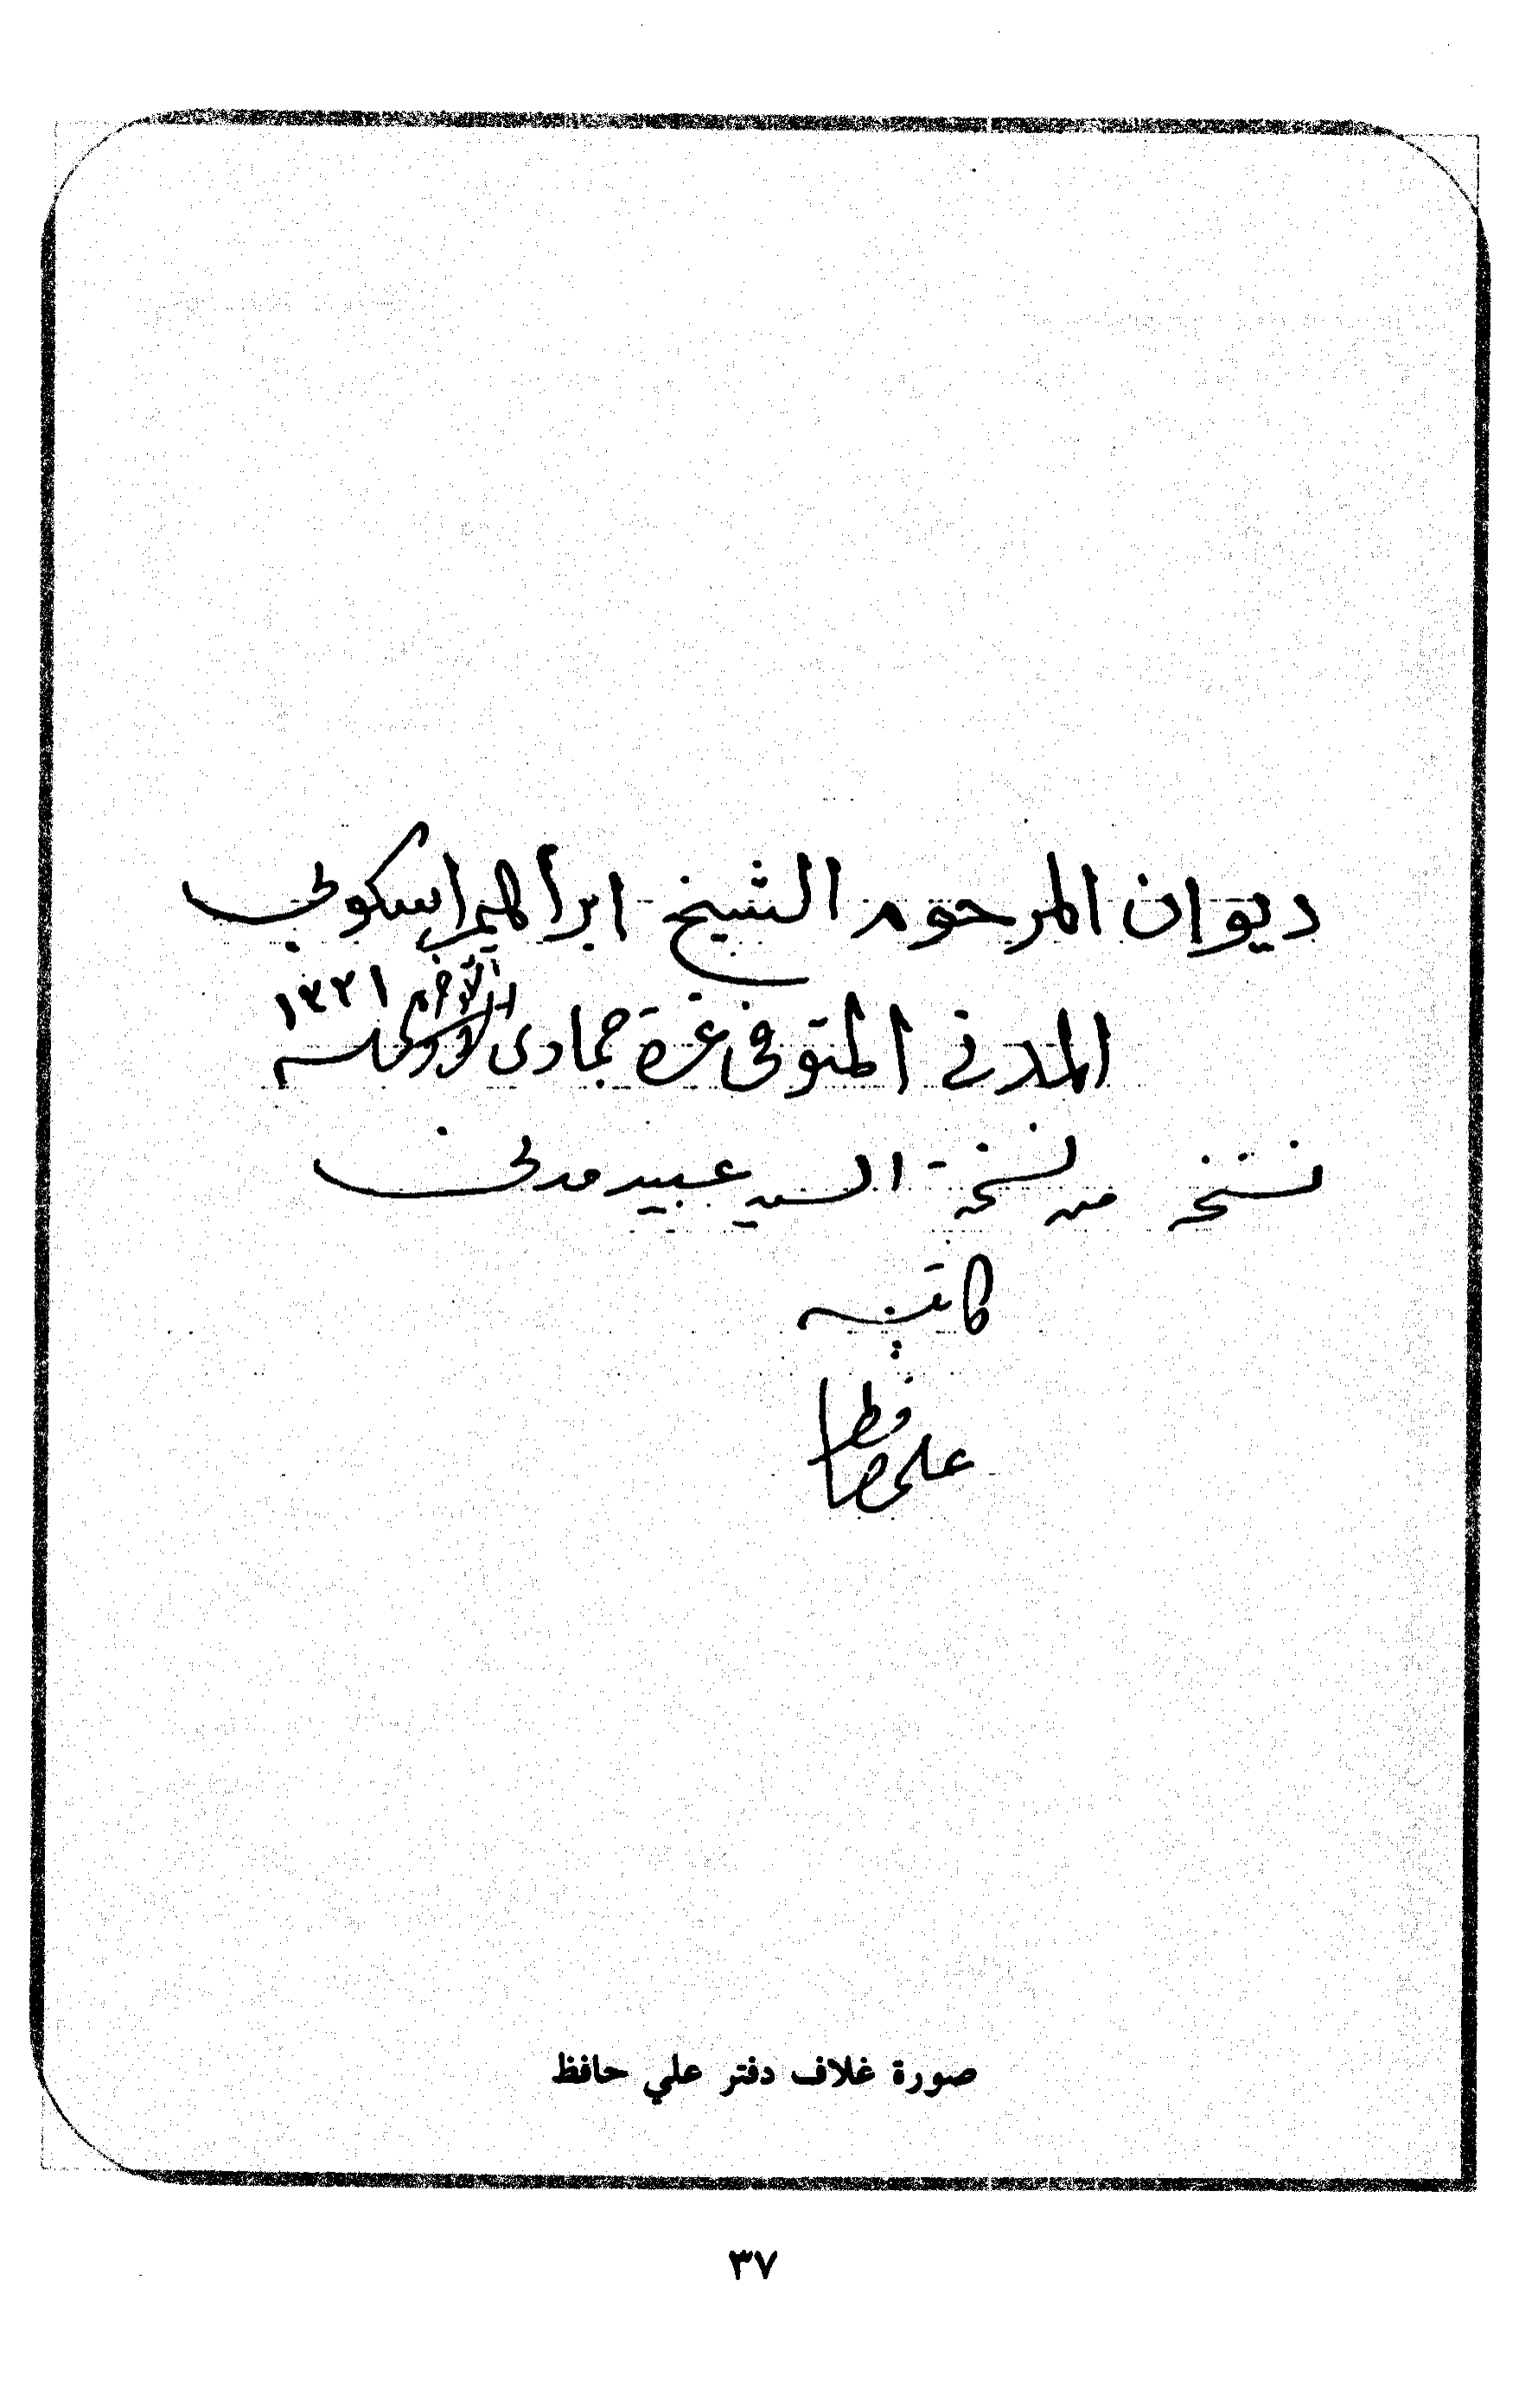 ديوان المرحوم الشيخ ابراهيم اسكوبي
المدني المتوفى غرة جمادى الآخر سنه ١٣٣١
نسخ من نسخة السيد عبيد مدني
كاتبه
علي حافظ
صورة غلاف دفتر علي حافظ
٣٧